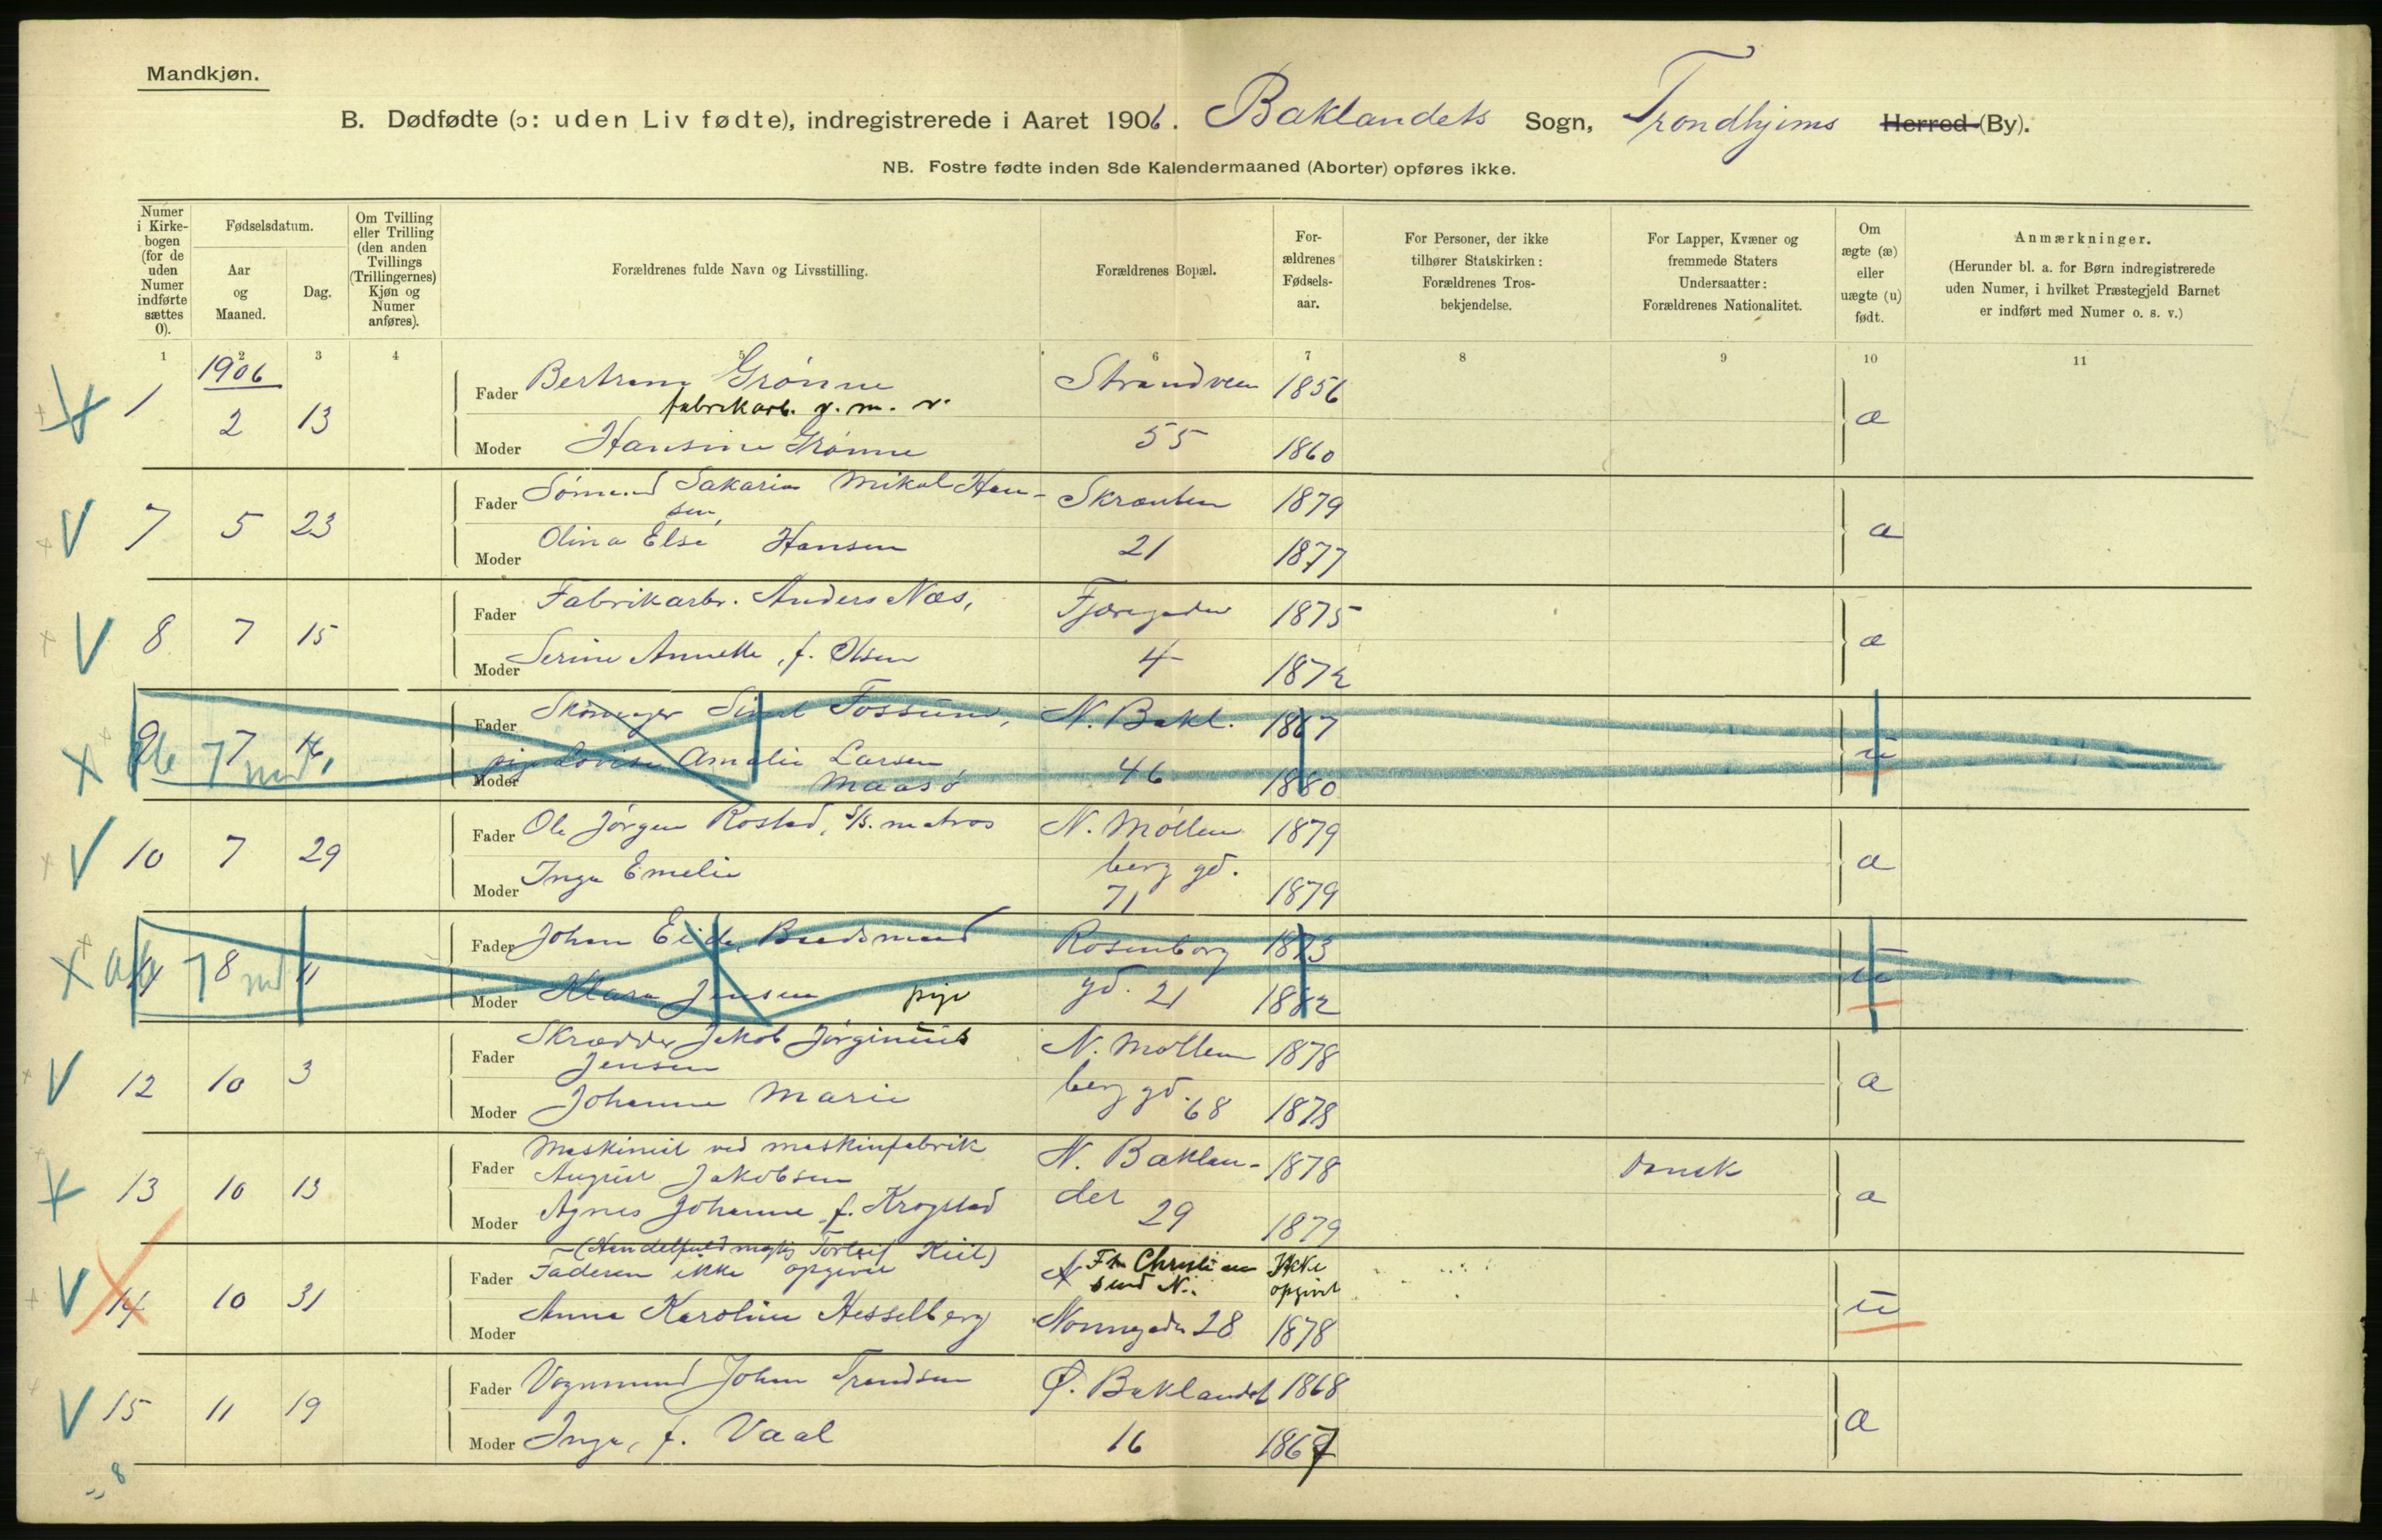 Mandkjøn.
B. Dødfødte (ɔ: uden Liv fødte), indregistrerede i Aaret 1906. Baklandets Sogn, Trondhjems Herred (By).
NB. Fostre fødte inden 8de Kalendermaaned (Aborter) opføres ikke.
Numer i Kirkebogen (for de uden Numer indførte sættes 0).
Fødselsdatum.
Aar og Maaned.
Dag.
Om Tvilling eller Trilling (den anden Tvillings (Trillingernes) Kjøn og Numer anføres).
Forældrenes fulde Navn og Livsstilling.
Forældrenes Bopæl.
Forældrenes Fødselsaar.
For Personer, der ikke tilhører Statskirken: Forældrenes Trosbekjendelse.
For Lapper, Kvæner og fremmede Staters Undersaatter: Forældrenes Nationalitet.
Om ægte (æ) eller uægte (u) født.
Anmærkninger.
(Herunder bl. a. for Børn indregistrerede uden Numer, i hvilket Præstegjeld Barnet er indført med Numer o. s. v.)
1 2 3 4 5 6 7 8 9 10 11
1906
1 2 13 Fader Bertram Grønne Strandveien 1856 æ
fabrikarb. v. m. v.
Moder Hansine Grønne 55 1860
7 5 23 Fader Sømand Sakarias Mikal Han- Skrænten 1879 æ
sen,
Moder Olina Elsé Hansen 21 1877
8 7 15 Fader Fabrikarbr. Anders Næs, Fjæregaden 1875 æ
Moder Serine Annette, f. Olsen 4 1872
9 7 16 Fader Fossum, N. Bakl. 1867 u
Moder pige Lovise Amalie Larsen 46 1880
Maasø
10 7 29 Fader Ole Jørgen Rostad, s/s. matros N. Møllen 1879 æ
berg gd.
Moder Inga Emelie 71 1879
11 8 11 Fader Johan Eide, Rosenborg 1873 u
Moder Klara Jensen pige gd. 21 1882
12 10 3 Fader Skrædder Jakob Jørginius N. Møllen 1878 æ
Jensen
Moder Johanne Marie berg gd. 68 1878
13 10 13 Fader Maskinist ved maskinfabrik N. Baklan- 1878 Dansk æ
August Jakobsen
Moder Agnes Johanne f. Krogstad det 29 1879
14 10 31 (Handelsfuldmægtig Torleif Kiil)
Fader Faderen ikke opgivet Fr. Christian Ikke u
sund N. opgivt
Moder Anna Karoline Hesselberg Nonnegaden 28 1878
15 11 19 Fader Vognmand Johan Trondsen Ø. Baklandet 1868 æ
Moder Inga, f. Vaal 16 1867
8